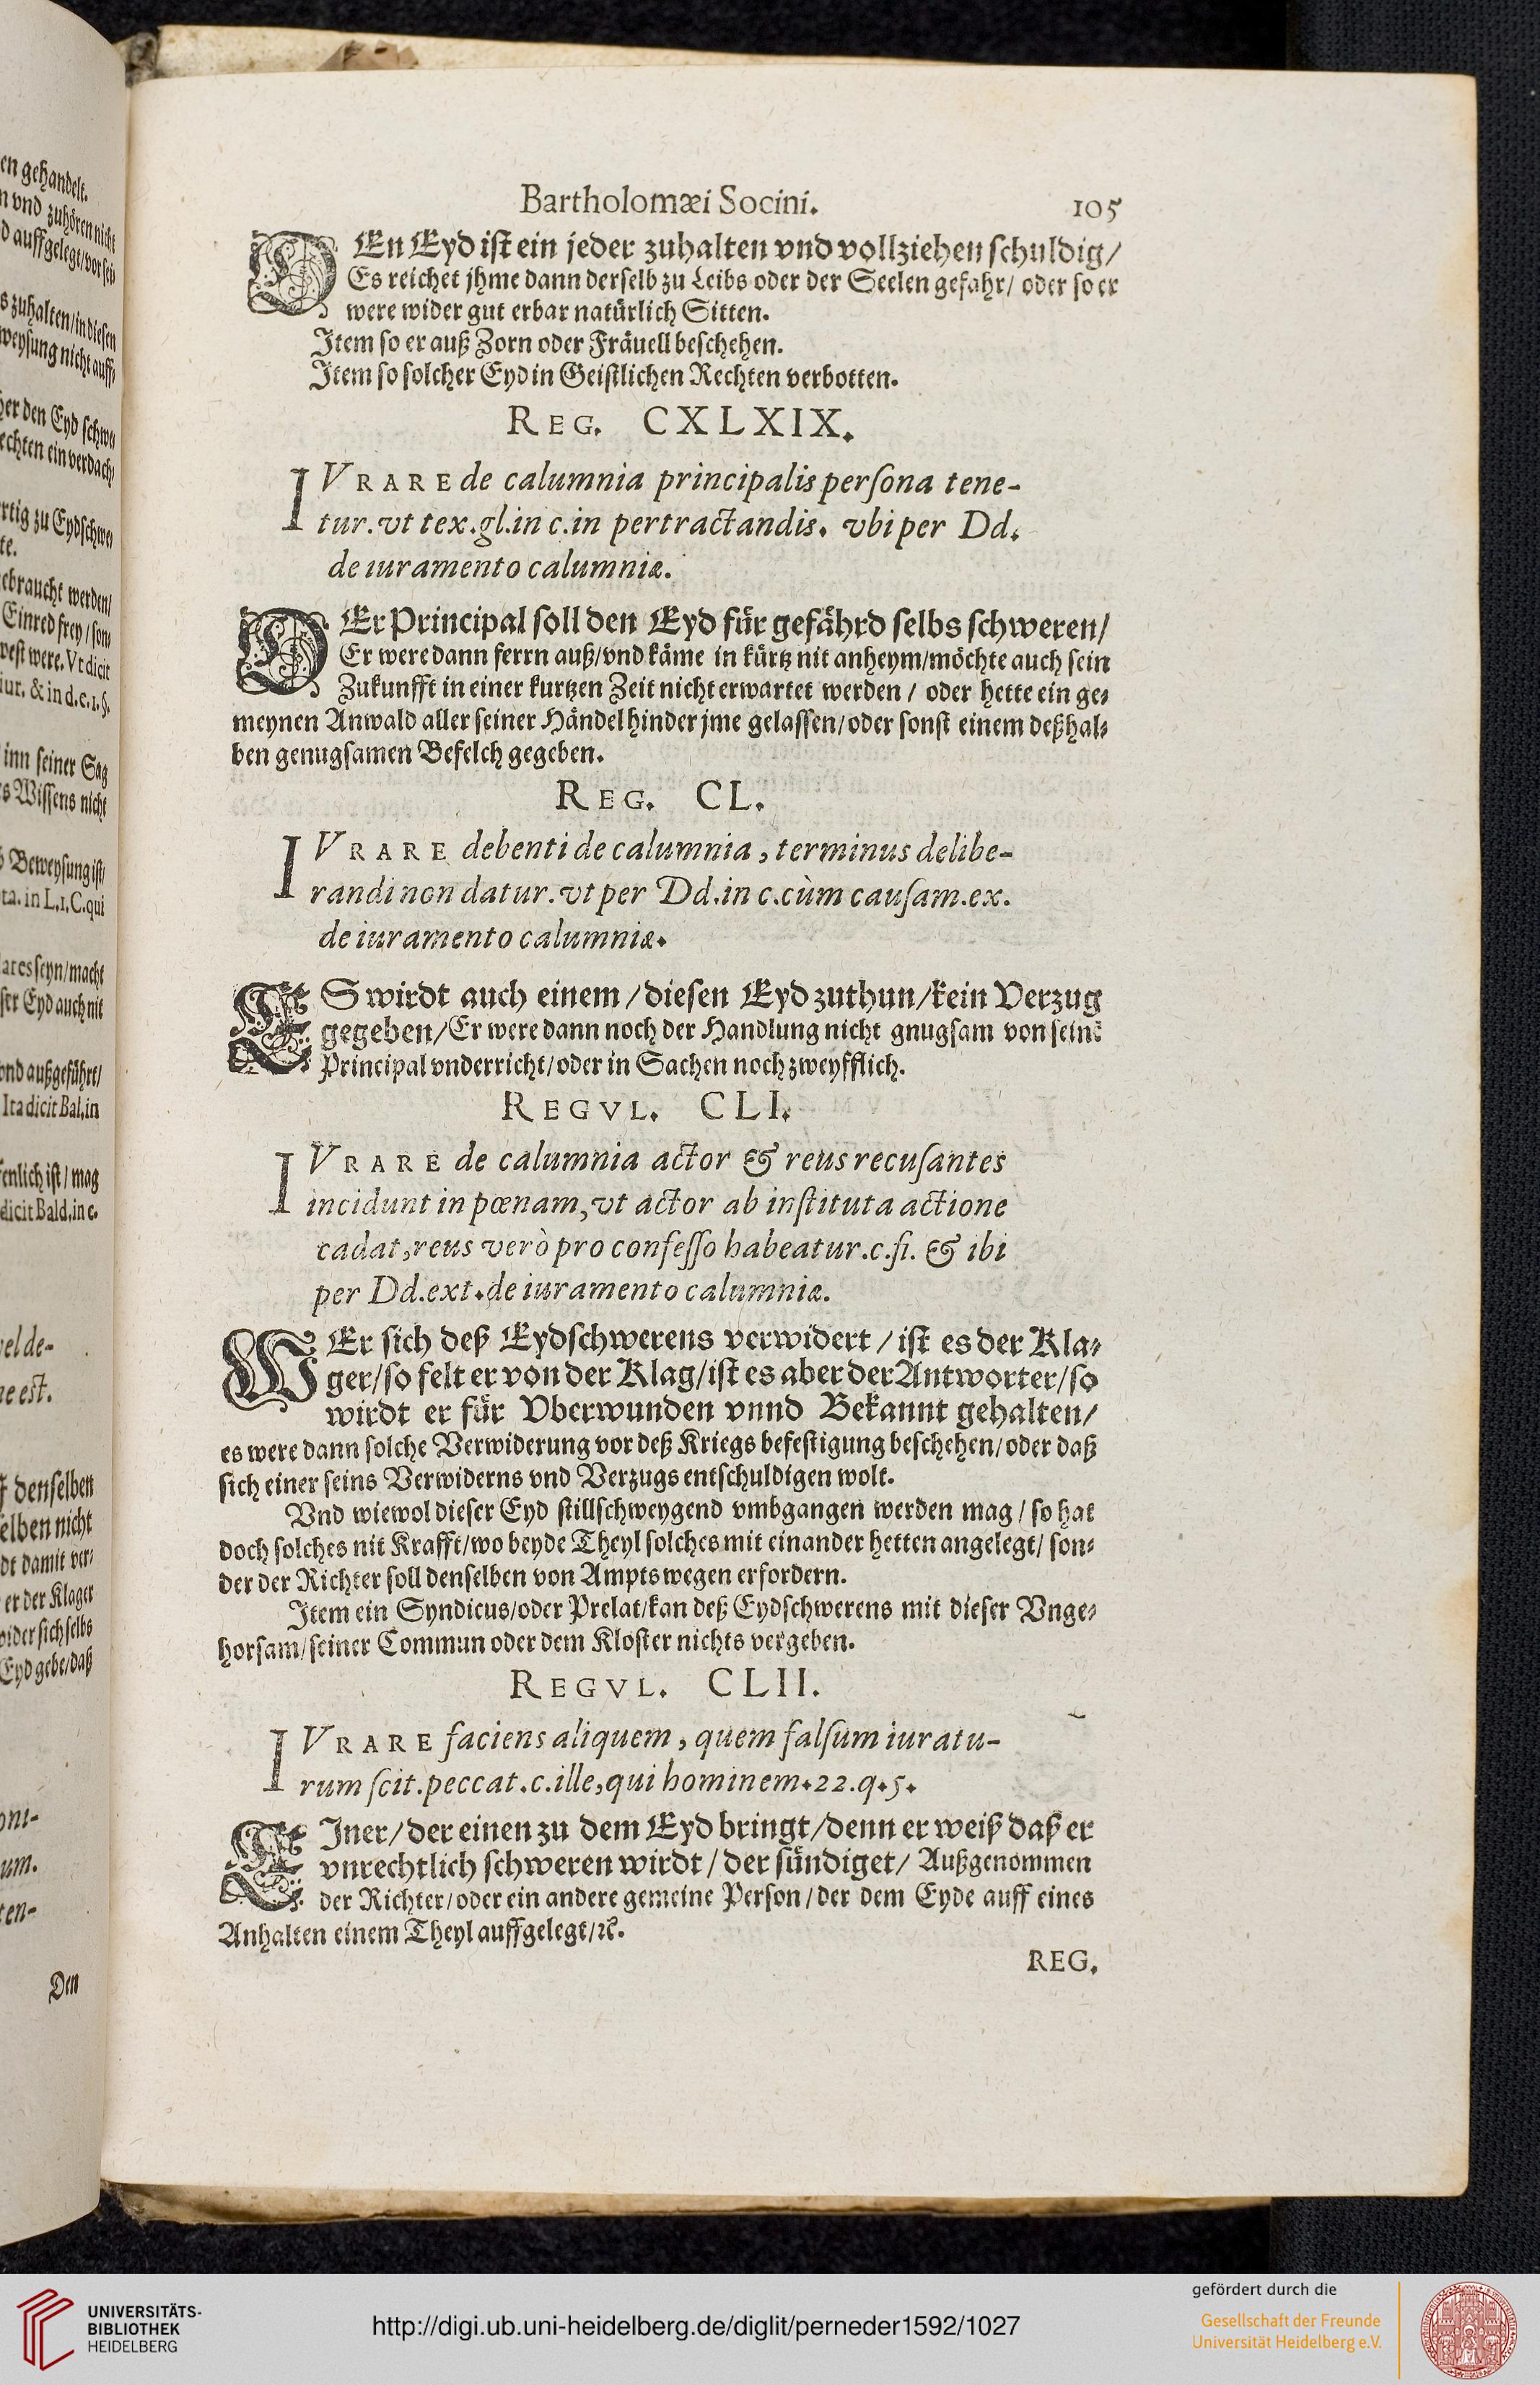 Bartholomæi Socini. 105
DEn Eyd ist ein jeder zuhalten vnd vollziehen schuldig/
Es reichet jhme dann derselb zu Leibs oder der Seelen gefahr/ oder so er
were wider gut erbar natürlich Sitten.
Item so er auß Zorn oder Fräuell beschehen.
Item so solcher Eyd in Geistlichen Rechten verbotten.
REG. CXLXIX.
IVRARE de calumnia principalis persona tene-
tur. vt tex. gl. in c. in pertractandis. vbi per Dd.
de iuramento calumniæ.
DEr Principal soll den Eyd für gefährd selbs schweren/
Er were dann ferrn auß/ vnd käme in kürtz nit anheym/ möchte auch sein
Zukunfft in einer kurtzen Zeit nicht erwartet werden / oder hette ein ge-
meynen Anwald aller seiner Händel hinder jme gelassen/ oder sonst einem deßhal-
ben genugsamen Befelch gegeben.
REG. CL.
IVRARE debenti de calumnia, terminus delibe-
randi non datur. vt per Dd. in c. cùm causam. ex.
de iuramento calumniæ.
ES wirdt auch einem / diesen Eyd zuthun/ kein Verzug
gegeben/ Er were dann noch der Handlung nicht gnugsam von seinē
Principal vnderricht/ oder in Sachen noch zweyfflich.
REGVL. CLI.
IVRARE de calumnia actor & reus recusantes
incidunt in pœnam, vt actor ab instituta actione
cadat, reus verò pro confesso habeatur. c. fi. & ibi
per Dd. ext. de iuramento calumniæ.
WEr sich deß Eydschwerens verwidert / ist es der Kla-
ger/ so felt er von der Klag/ ist es aber der Antworter/ so
wirdt er für Vberwunden vnnd Bekannt gehalten/
es were dann solche Verwiderung vor deß Kriegs befestigung beschehen/ oder daß
sich einer seins Verwiderns vnd Verzugs entschuldigen wolt.
Vnd wiewol dieser Eyd stillschweygend vmbgangen werden mag / so hat
doch solches nit Krafft/ wo beyde Theyl solches mit einander hetten angelegt/ son-
der der Richter soll denselben von Ampts wegen erfordern.
Item ein Syndicus/ oder Prelat/ kan deß Eydschwerens mit dieser Vnge-
horsam/ seiner Commun oder dem Kloster nichts vergeben.
REGVL. CLII.
IVRARE faciens aliquem, quem falsum iuratu-
rum scit. peccat. c. ille, qui hominem. 22. q. 5.
EIner/ der einen zu dem Eyd bringt/ denn er weiß daß er
vnrechtlich schweren wirdt / der sündiget/ Außgenommen
der Richter/ oder ein andere gemeine Person / der dem Eyde auff eines
Anhalten einem Theyl auffgelegt/ ꝛc.
REG.
en gehandelt.
n vnd zuhören nicht
d auffgelegt/ vor sein
s zuhalten/ in diesen
weysung nicht auff-
her den Eyd schwe-
echten ein verdach-
rtig zu Eydschwe-
te.
ebraucht werden/
Einred frey / son-
west were. Vt dicit
iur. & in d. c. 1. §.
inn seiner Sag
s Wissens nicht
Beweysung ist/
ta. in L. 1. C. qui
ares seyn/ macht
ser Eyd auch nit
vnd außgeführt/
Ita dicit Bal. in
fenlich ist / mag
dicit Bald. in c.
vel de-
ne est.
denselben
elben nicht
dt damit ver-
er der Klager
wider sich selbs
Eyd gebe/ daß
oni-
um.
ten-
Den
UNIVERSITÄTS-
BIBLIOTHEK
HEIDELBERG
http://digi.ub.uni-heidelberg.de/diglit/perneder1592/1027
gefördert durch die
Gesellschaft der Freunde
Universität Heidelberg e.V.